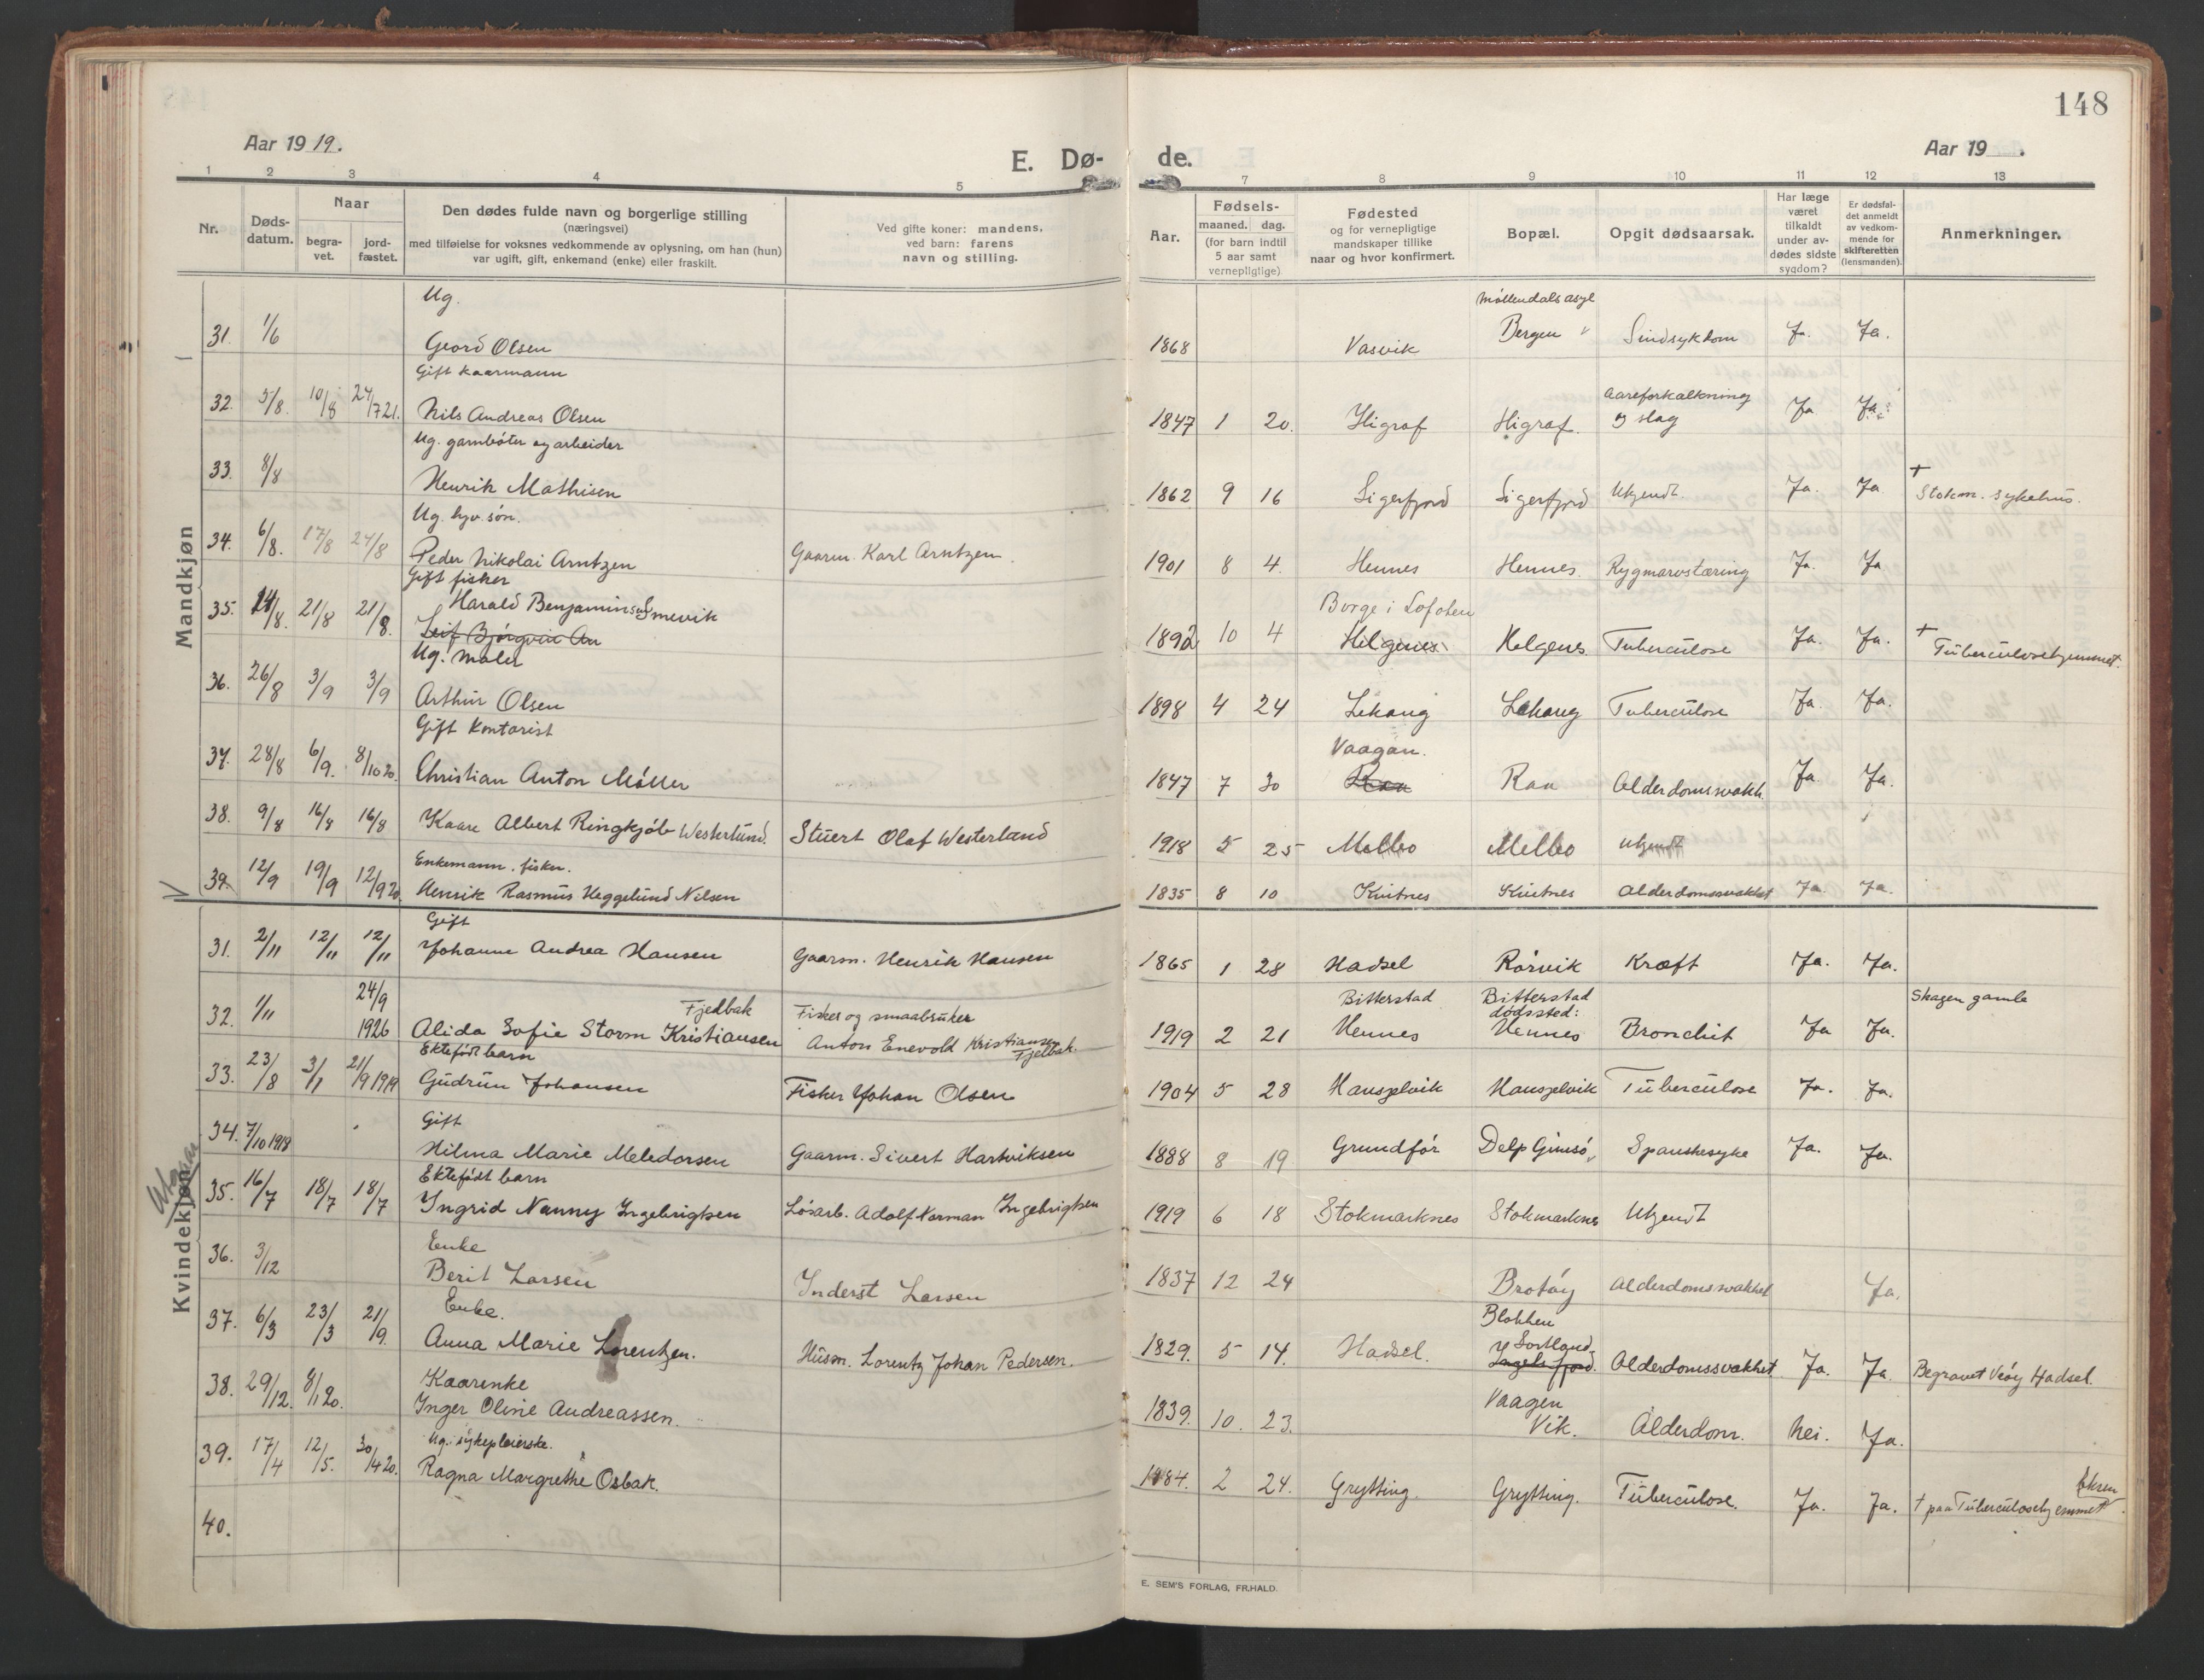 148
Aar 1919.
E. Dø-
de.
Aar 19 .
1 2 3 4 5 7 8 9 10 11 12 13
Nr.
Døds-
datum.
Naar
begra-
vet.
jord-
fæstet.
Den dødes fulde navn og borgerlige stilling
(næringsvei)
med tilføielse for voksnes vedkommende av oplysning, om han (hun)
var ugift, gift, enkemand (enke) eller fraskilt.
Ved gifte koner: mandens,
ved barn: farens
navn og stilling.
Aar.
Fødsels-
maaned. dag.
(for barn indtil
5 aar samt
vernepligtige)
Fødested
og for vernepligtige
mandskaper tillike
naar og hvor konfirmert.
Bopæl.
Opgit dødsaarsak.
Har læge
været
tilkaldt
under av-
dødes sidste
sygdom?
Er dødsfal-
det anmeldt
av vedkom-
mende for
skifteretten
(lensmanden).
Anmerkninger.
Mandkjøn
Ug. Möllendals asyl
31. 1/6 Geord Olsen 1868 Vasvik Bergen Sindsykdom Ja. Ja.
Gift kaarmann Aareforkalkning
32. 5/8. 10/8 24/7 21. Nils Andreas Olsen 1847 1 20. Higraf Higraf. og slag Ja Ja.
Ug. garnbøter og arbeider
33. 8/8 Henrik Mathisen 1862 9 16 Sigerfjord Sigerfjord Ukjendt Ja. Ja † Stokm. sykehus.
Ug. hjv. søn.
34. 6/8. 17/8 24/8 Peder Nikolai Arntzen Gaarm. Karl Arntzen. 1901 8 4. Hennes Hennes. Rygmarvstæring Ja. Ja
Gift fisker
Harald Benjaminsen Smevik Borge i Lofoten
35. 14/8. 21/8 21/8. Leif Bjørgvin An 1892 10 4 Helgenes Helgenes Tuberculose Ja. Ja. † Tuberculosehjemmet.
Ug. maler
36. 26/8 3/9 3/9 Arthur Olsen 1898 4 24 Lekang Lekang Tuberculose Ja. Ja.
Gift Kontorist Vaagan.
37. 28/8 6/9. 8/10 20. Christian Anton Möller 1847 7 30 Raa Alderdomssvakh. Ja Ja.
38. 9/8 16/8 16/8 Kaare Albert Ringkjøb Westerlund. Stuert Olaf Westerland 1918 5 25 Melbo Melbo Ukjendt
Enkemann. fisker.
39. 12/9 19/9 12/9 20 Henrik Rasmus Heggelund Nilsen 1835 8 10 Kvitnes Kvitnes Alderdomssvakhet Ja. Ja.
Kvindekjøn
Gift
31. 2/11 12/11 12/11 Johanne Andrea Hansen Gaarm. Henrik Hansen 1865 1 28 Hadsel Rørvik Kræft Ja. Ja.
24/9 Fjelbak Fisker og smaabruker Bitterstad Bitterstad Skagen gamle
dødssted:
32. 1/11 1926 Alida Sofie Storm Kristiansen Anton Enevold Kristiansen Fjelbak. 1919 2 21 Hennes Hennes Bronchit Ja Ja.
Ektefødt barn
33. 23/8 3/1 21/9 1919 Gudrun Johansen Fisker Johan Olsen 1904 5 28 Haugelvik Haugelvik Tuberculose Ja. Ja.
Gift
34. 7/10 1918 Hilma Marie Meledorsen Gaarm. Sivert Hartviksen 1888 8 19 Grundfør Delp Gimsø, Spanskesyke Ja. Ja.
Ektefødt barn
35. 16/7 18/7 18/7 Ingrid Nanny Ingebrigtsen Løsarb. Adolf Norman Ingebrigtsen 1919 6 18 Stokmarknes Stokmarknes Ukjendt
Enke
36. 3/12 Berit Larsen Inderst Larsen 1837 12 24 Brotøy Alderdomssvakhet Ja.
Enke. Blokken
Sortland
37. 6/3 23/3 21/9. Anna Marie Lorentzen. Husm. Lorentz Johan Pedersen. 1829. 5 14. Hadsel. Ingelsfjord. Alderdomssvakhet Ja. Ja. Begravet Vèøy Hadsel.
Kaarenke Vaagen
38. 29/12. 8/1 20. Inger Oline Andreassen. 1839. 10. 23. Vik. Alderdom. Nei. Ja.
Ug. sykepleierske.
39. 17/4 12/5. 30/4 20. Ragna Margrethe Osbak. 1884. 2 24. Grytting. Grytting. Tuberculose. Ja. Ja. † paa Tuberculosehjemmet
40.
E. SEM'S FORLAG, FR.HALD.